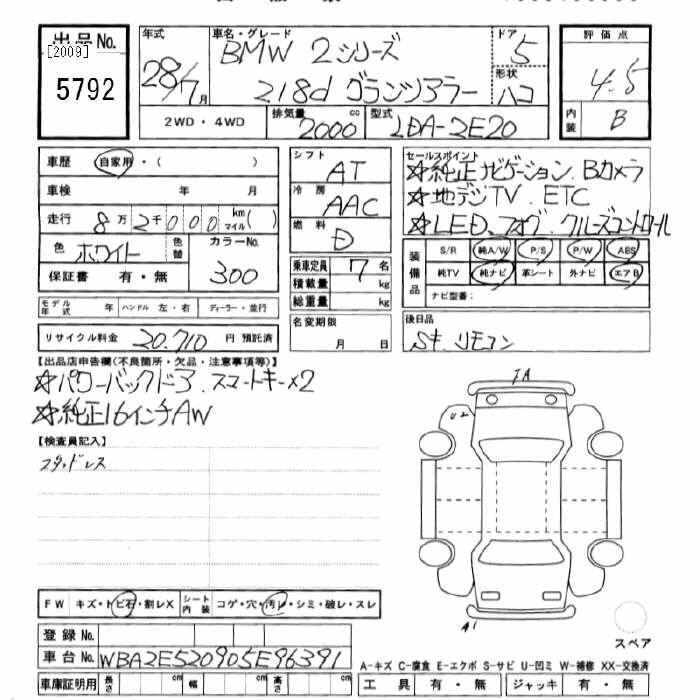 出品No.
[2009]
5792
年式
28/7月
車名・グレード
BMW 2シリーズ
218d グランツアラー
ドア
5
形状
ハコ
評価点
4.5
内装
B
2WD・4WD
排気量
2000cc
型式
LDA-2E20
車歴 自家用・( )
車検 年 月
走行 8万2千000km マイル( )
色 ホワイト 色替
カラーNo.
300
保証書 有・無
モデル年式 年 ハンドル 左・右 ディーラー・並行
リサイクル料金 20.710 円 預託済
シフト
AT
冷房
AAC
燃料
D
乗車定員 7名
積載量 kg
総重量 kg
名変期限
月 日
セールスポイント
☆純正ナビゲーション.Bカメラ
☆地デジTV. ETC
☆LED. フォグ. クルーズコントロール
装備品
S/R 純A/W P/S P/W ABS
純TV 純ナビ 革シート 外ナビ エアB
ナビ型番:
後日品
Sキ. リモコン
【出品店申告欄(不良箇所・欠品・注意事項等)】
☆パワーバックドア. スマートキー×2
☆純正16インチAW
【検査員記入】
スタッドレス
FW キズ・トビ石・割レX シート内装 コゲ・穴・汚レ・シミ・破レ・スレ
登録No.
車台No. WBA2E520905E96391
車庫証明用 長さ cm 幅 cm 高さ cm
U2
A1
スペア
A-キズ C-腐食 E-エクボ S-サビ U-凹ミ W-補修 XX-交換済
工具 有・無 ジャッキ 有・無